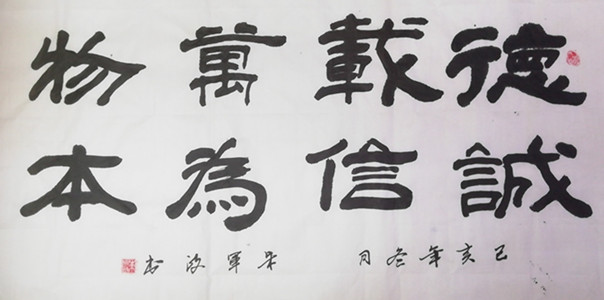 德載萬物
誠信為本
己亥年冬月 軍 书